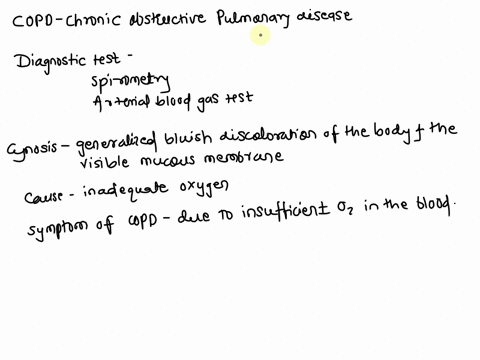 COPD-Chronic obstructive Pulmonary disease
Diagnostic test -
Spirometry
Arterial blood gas test
Cynosis - generalized bluish discoloration of the body & the
visible mucous membrane
Cause - inadequate oxygen
Symptom of COPD - due to insufficient O2 in the blood.